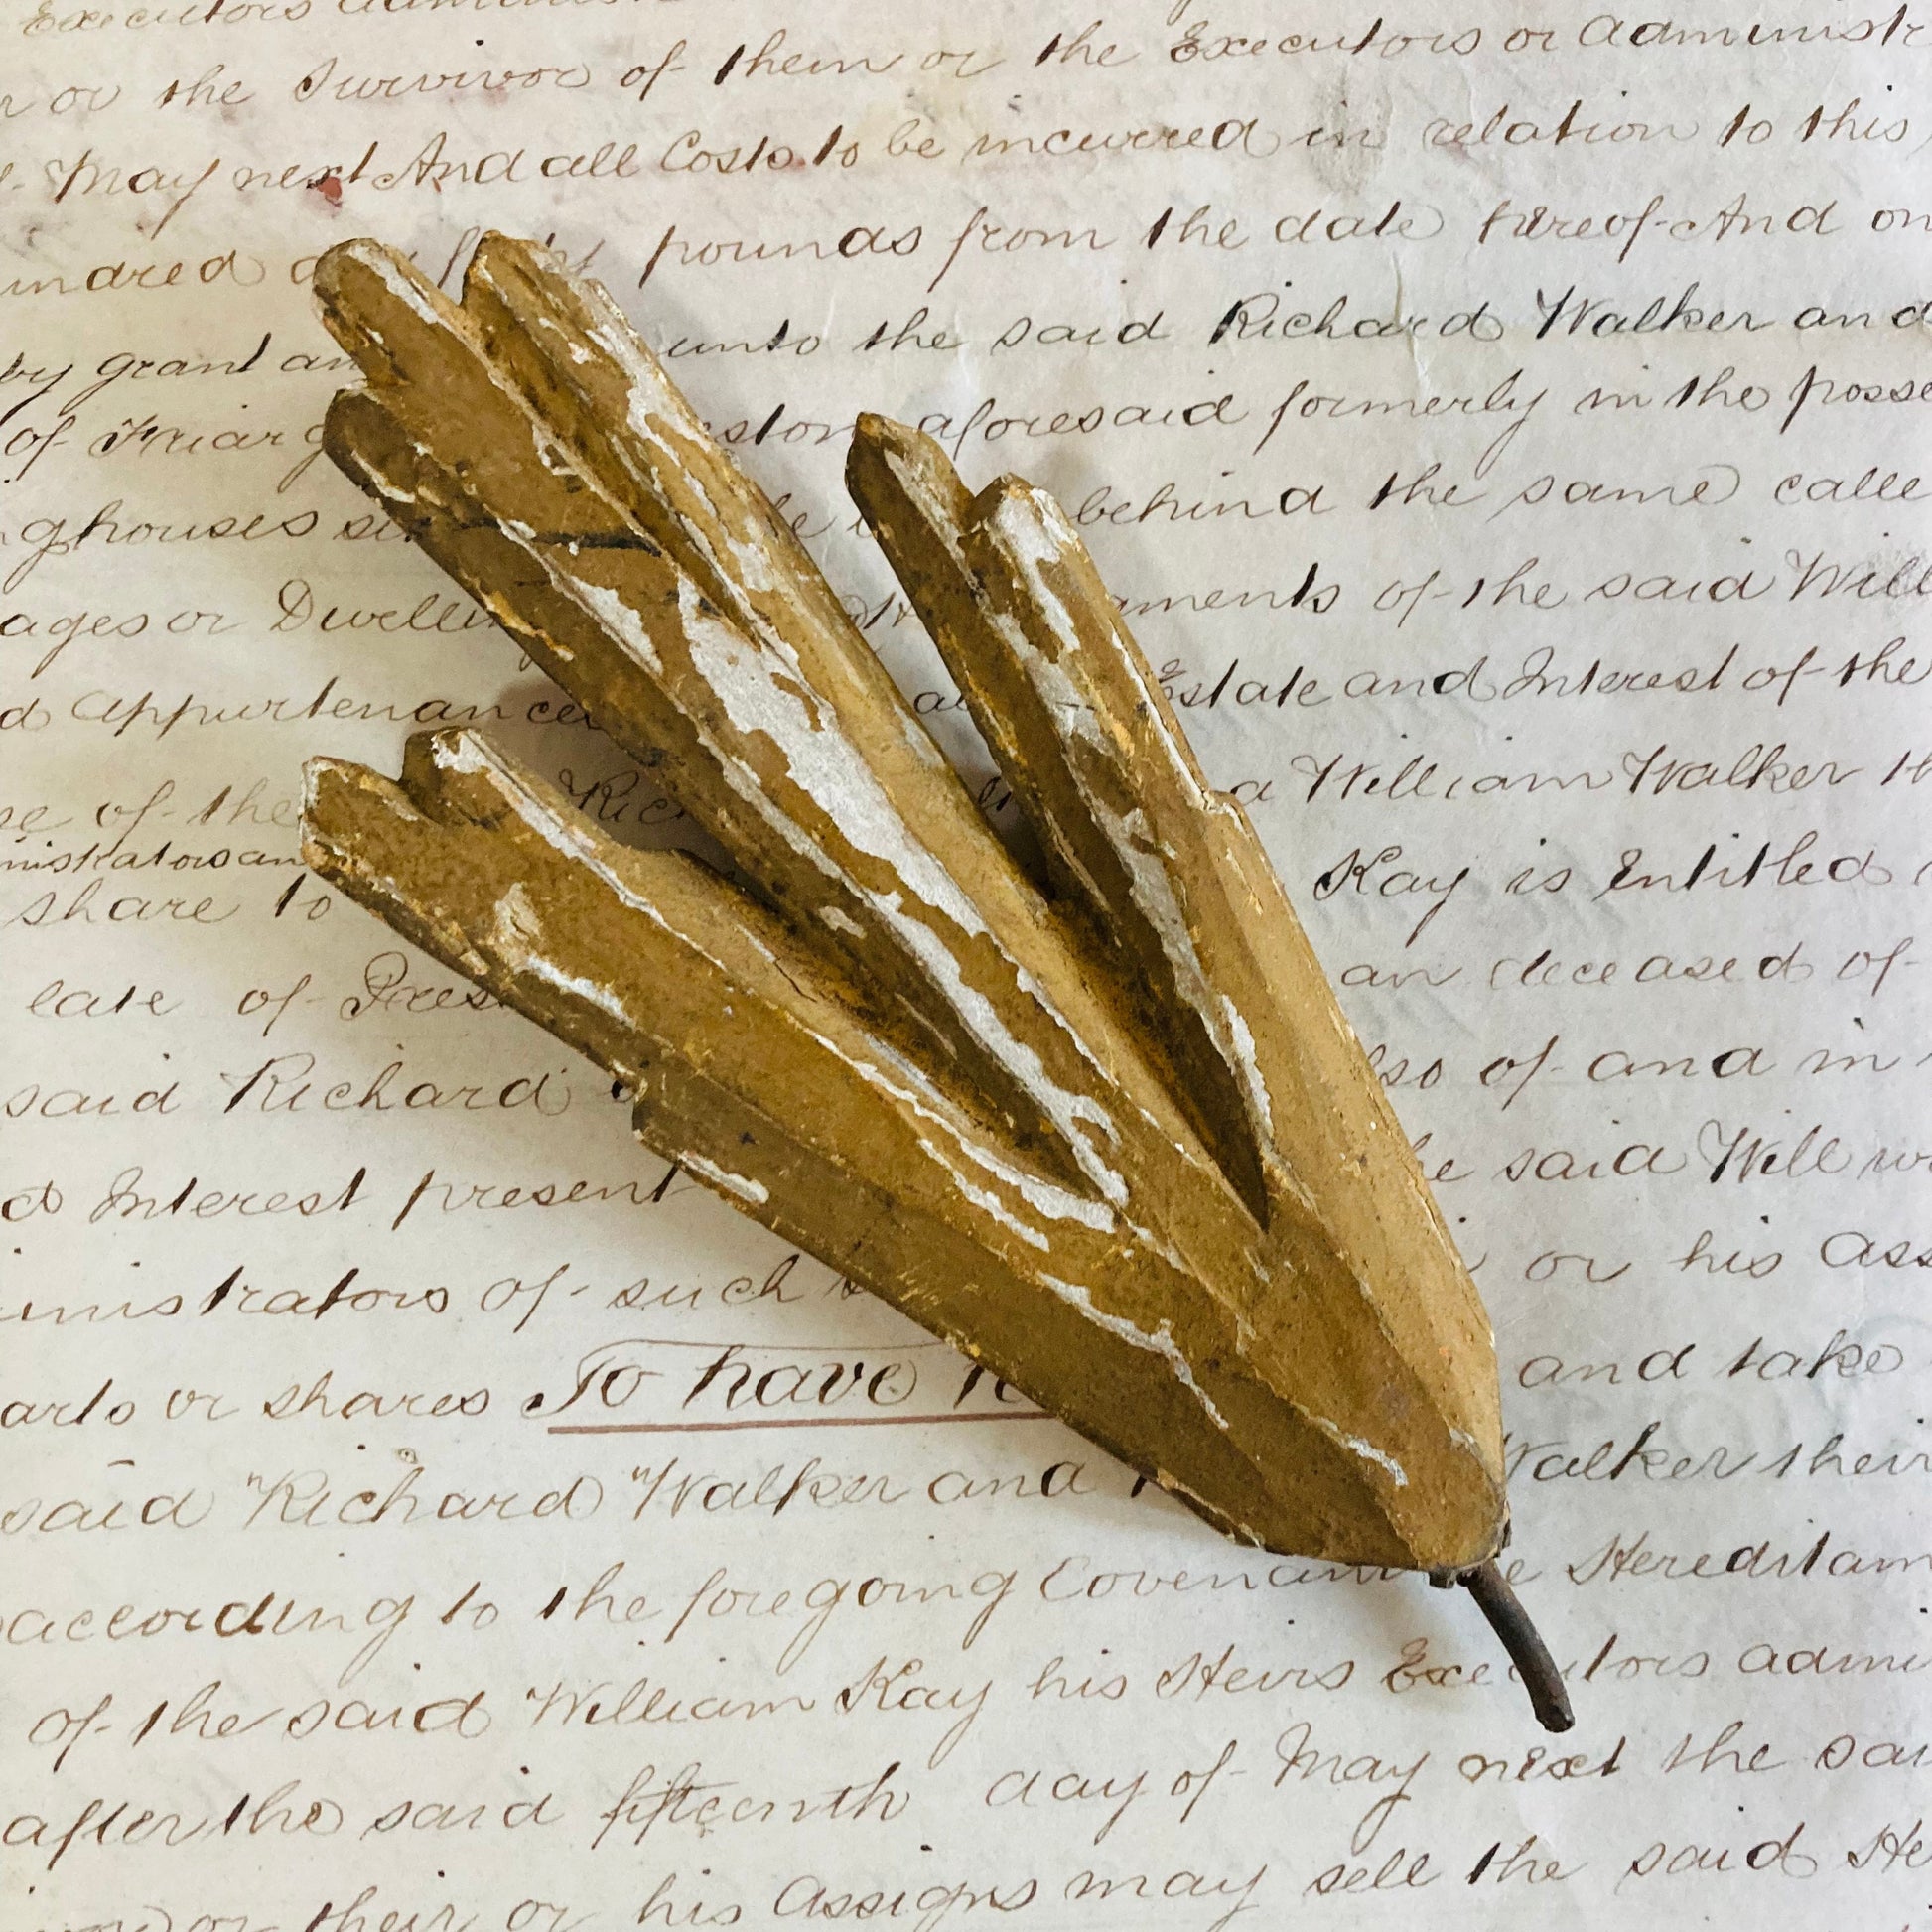 Executors
or the Survivor of them or the Executors or Administr
May next And all Costs to be incurred in relation to this
undred pounds from the date hereof And on
by grant an unto the said Richard Walker and
of Friarg eston aforesaid formerly in the posse
ghouses si behind the same calle
ages or Dwellin aments of the said Will
d Appurtenances Estate and Interest of the
se of the Ric William Walker
nistrators an
share to Kay is Entitled
late of Pres an deceased of
said Richard lso of and in
d Interest present he said Will
inistrators of such or his Ass
arts or shares To have and take
said Richard Walker and Walker their
according to the foregoing Covenan e Hereditam
of the said William Kay his Heirs Executors admi
after the said fifteenth day of May next the sai
or their or his Assigns may sell the said He